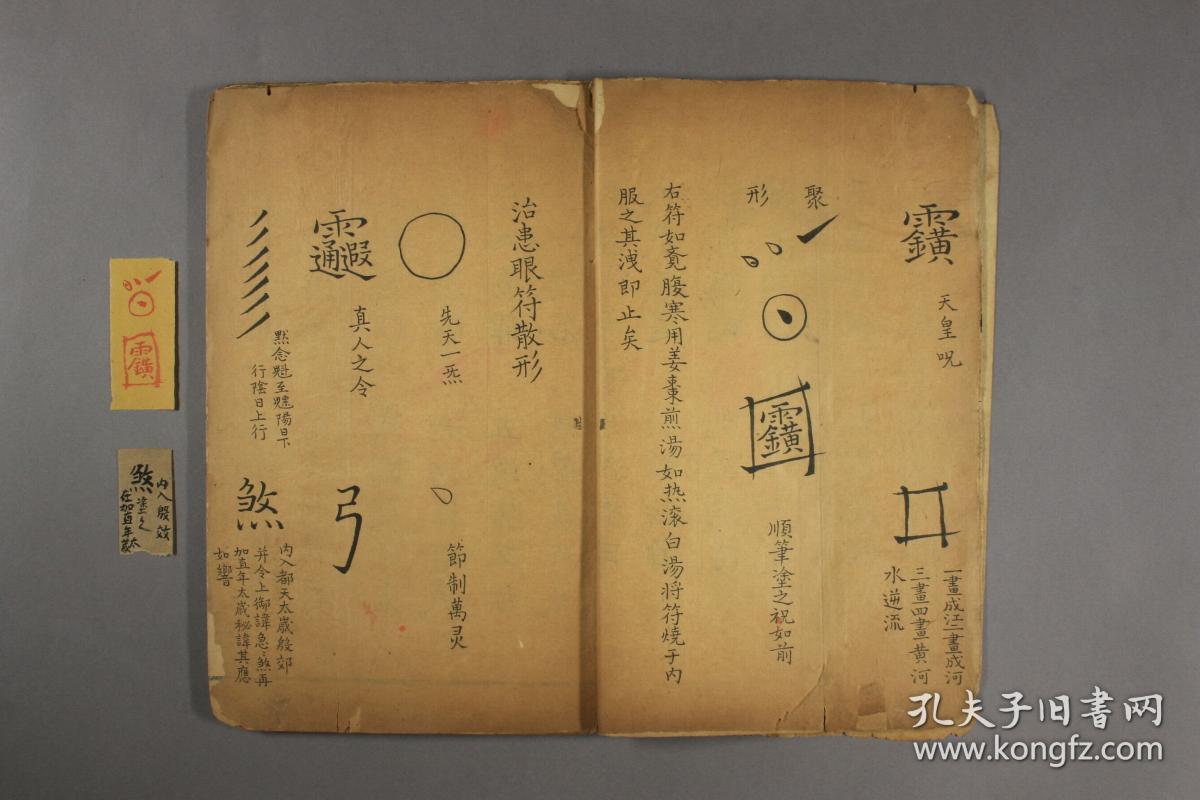 天皇呪
一畫成江二畫成河
三畫四畫黄河
水逆流
聚
形
順筆塗之祝如前
右符如覔腹寒用姜棗煎湯如热滚白湯将符燒于内
服之其洩即止矣
治患眼符散形
先天一炁
節制萬灵
真人之令
弓
默念魁至魒陽日下
行陰日上行
煞
内入都天太歲殷郊
并令上御諱急煞再
加直年太歲秘諱其應
如響
内入殷郊
煞塗之
在加直年太歲
孔夫子旧書网
www.kongfz.com